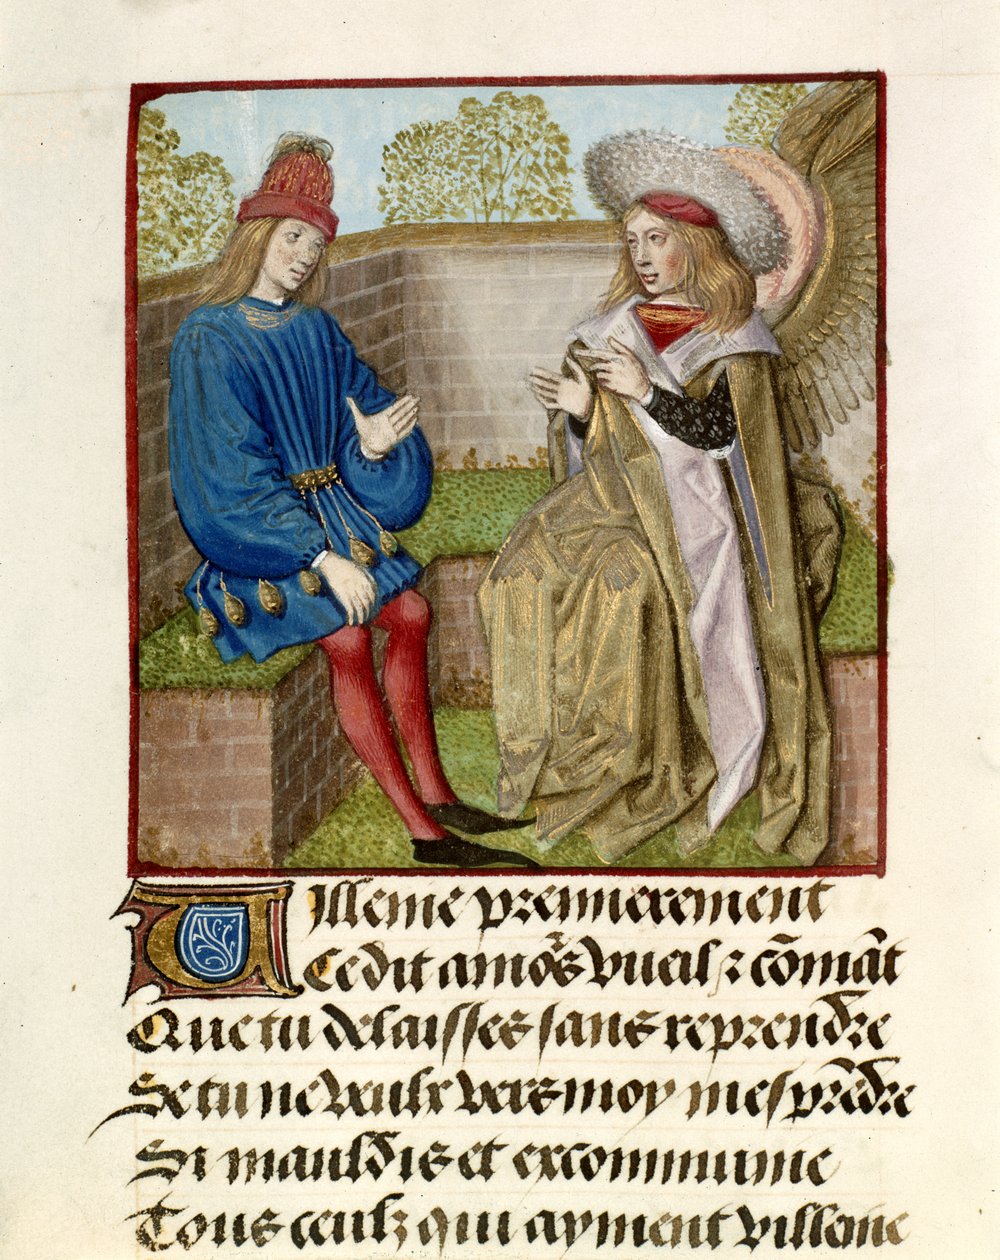 Villenie premierement
Ce dit amo᷑s vueil ⁊ cōmāt
Que tu delaisses sans reprendre
Se tu ne veulx vers moy mesprēdre
Si mauldis et excommunie
Tous ceulz qui ayment villenie